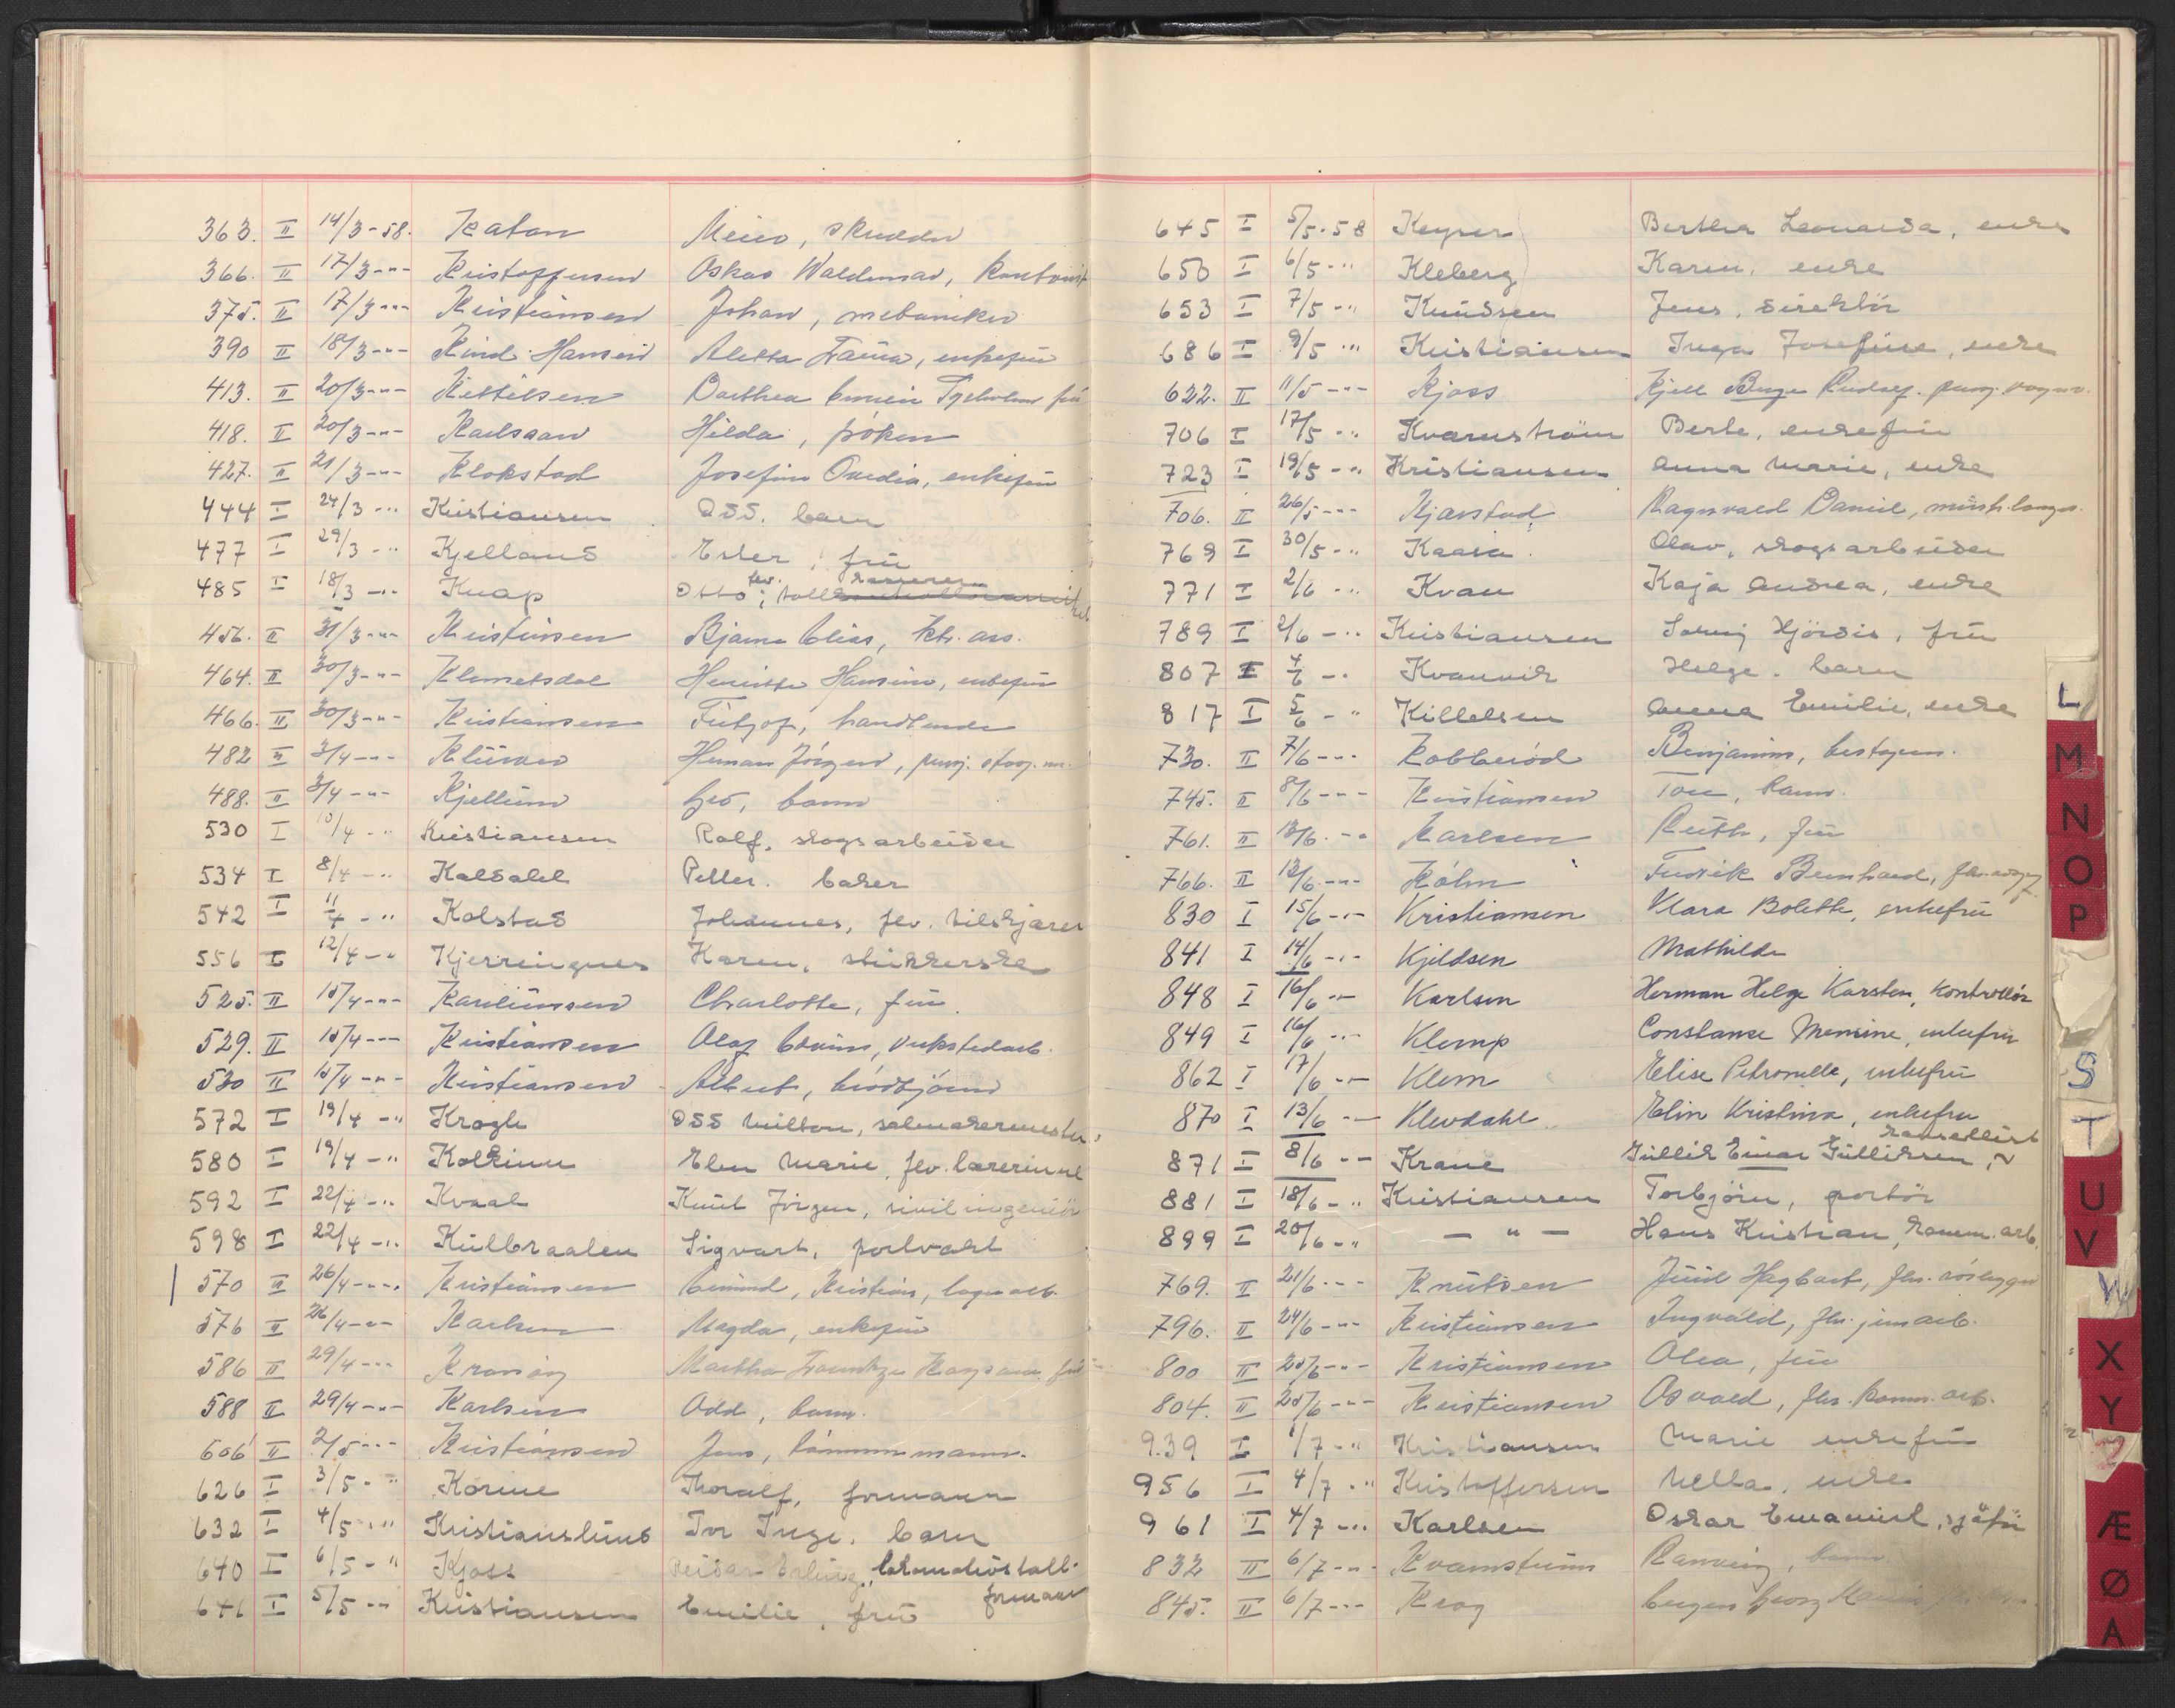 363. II 14/3-58. Katan Meier, skredder
366. II 17/3-"- Kristoffersen Oskar Waldemar,
375. II 17/3-"- Kristiansen Johan, mekaniker
390 II 18/3-"- Rind-Hansen Aletta, enkefru
413. II 20/3-"- Kittilsen Dorthea fru
418. II 20/3-"- Karlsson Hilda, frøken
427. II 21/3-"- Klokstad Josefine Ovedia, enkefru
444 I 24/3-" Kristiansen Odd, barn
477 I 29/3-" Kjelland Ester, frü
485 I 18/3-" Knap Otto, fhv. toll kasserer
456. II 31/3-"- Kristensen Bjarne Elias,
464. II 30/3-"- Klemetsdal Henriette Hansine, enkefru
466. II 30/3-"- Kristiansen Fritjof, handlende
482 II 3/4-"- Klüwer Herman Jörgen,
488. II 3/4-"- Kjellund barn
530 I 10/4-" Kristiansen Rolf, skogsarbeider
534 I 8/4-" Kaldahl Petter. baker
542 I 11/4-" Kolstad Johannes, fhv. tilskjærer
556 I 12/4-" Kjerringnes Karen, strikkerske
525. II 15/4-"- Karlünsen Charlotte, frü
529. II 15/4-"- Kristiansen Olaf Edvin, verkstedarb.
530 II 15/4-"- Kristiansen Albert,
572 I 19/4-" Krogh Odd Milton, salmakermester
580 I 19/4-" Kolkinn Elen Marie, fhv. lærerinne
592 I 22/4-" Kvaal Knut Jörgen, sivilingeniör
598 I 22/4-" Külbraaten Sigvart, portvakt
570 II 26/4-"- Kristiansen Kristian, lagerarb.
576 II 26/4-"- Karlsen Magda, enkefru
586 II 29/4-"- Martha
588 II 29/4-"- Karlsen Odd, barn.
606 II 2/5-"- Kristiansen Jens, tömmermann.
626 I 3/5-" Korine Thoralf, formann
632 I 4/5-" Kristianslund Tor Inge. barn
640 I 6/5-" Kjoss Reidar Erling, lokomotivstall-formann
641 I 5/5-" Kristiansen Emilie, frü
645 I 5/5-58 Keyser Bertha Leonarda, enke
650 I 6/5-" Kleberg Karen, enke
653 I 7/5-" Knüdsen Jens, direktör
686 I 9/5-" Kristiansen Inga Josefine, enke
622. II 11/5-"- Kjoss Kjell Birger Rudolf.
706 I 17/5-" Kvarnström Berte, enkefrü
723 I 19/5-" Kristiansen Anna Marie, enke
706. II 26/5-"- Kjærstad Ragnvald Daniel,
769 I 30/5-" Kaasa Olav, skogsarbeider
771 I 2/6-" Kvan Kaja Andrea, enke
789 I 2/6-" Kristiansen Solveig Hjördis, frü
807 I 4/6-" Kvannvik Helge. barn
817 I 5/6-" Killelsen Anna Emilie, enke
730. II 7/6-"- Kobberöd Benjamin,
745. II 8/6-"- Kristiansen Tone, barn.
761. II 12/6-" Karlsen Rüth, frü
766. II 12/6-"- Kölm Fredrik Bernhard,
830 I 15/6-"- Kristiansen Klara Bolette, enkefrü
841 I 14/6-"- Kjeldsen Mathilde
848 I 16/6-" Karlsen Herman Helge Karsten, kontrollör
849 I 16/6-" Klemp Constanse Mensine, enkefru
862 I 17/6-" Klem Elise Petronelle, enkefrü
870 I 13/6-" Klevdahl Elin Kristine, enkefru
871 I 8/6-" Krane Güllik Einar Gülliksen, kansellist
881 I 18/6-" Kristiansen Torbjörn, portör
899 I 20/6-" -"- Hans Kristian, komm. arb.
769. II 21/6-"- Knutsen Juul Hagbart,
796. II 24/6-"- Kristiansen Ingvald, fhv. jernarb.
800 II 25/6-"- Kristiansen Olea, frü
804. II 25/6-"- Kristiansen Osvald, fhv. komm. arb.
939 I 1/7-" Kristiansen Marie enkefrü
956 I 4/7-" Kristoffersen Mella, enke
961 I 4/7-" Karlsen Oskar Emanuel, sjåfør
832 II 6/7-"- Kvamstrüm Ranveig, barn
845. II 6/7-"- Krog Georg
L
M
N
O
P
S
T
U
V
W
X
Y
Z
Æ
Ø
A